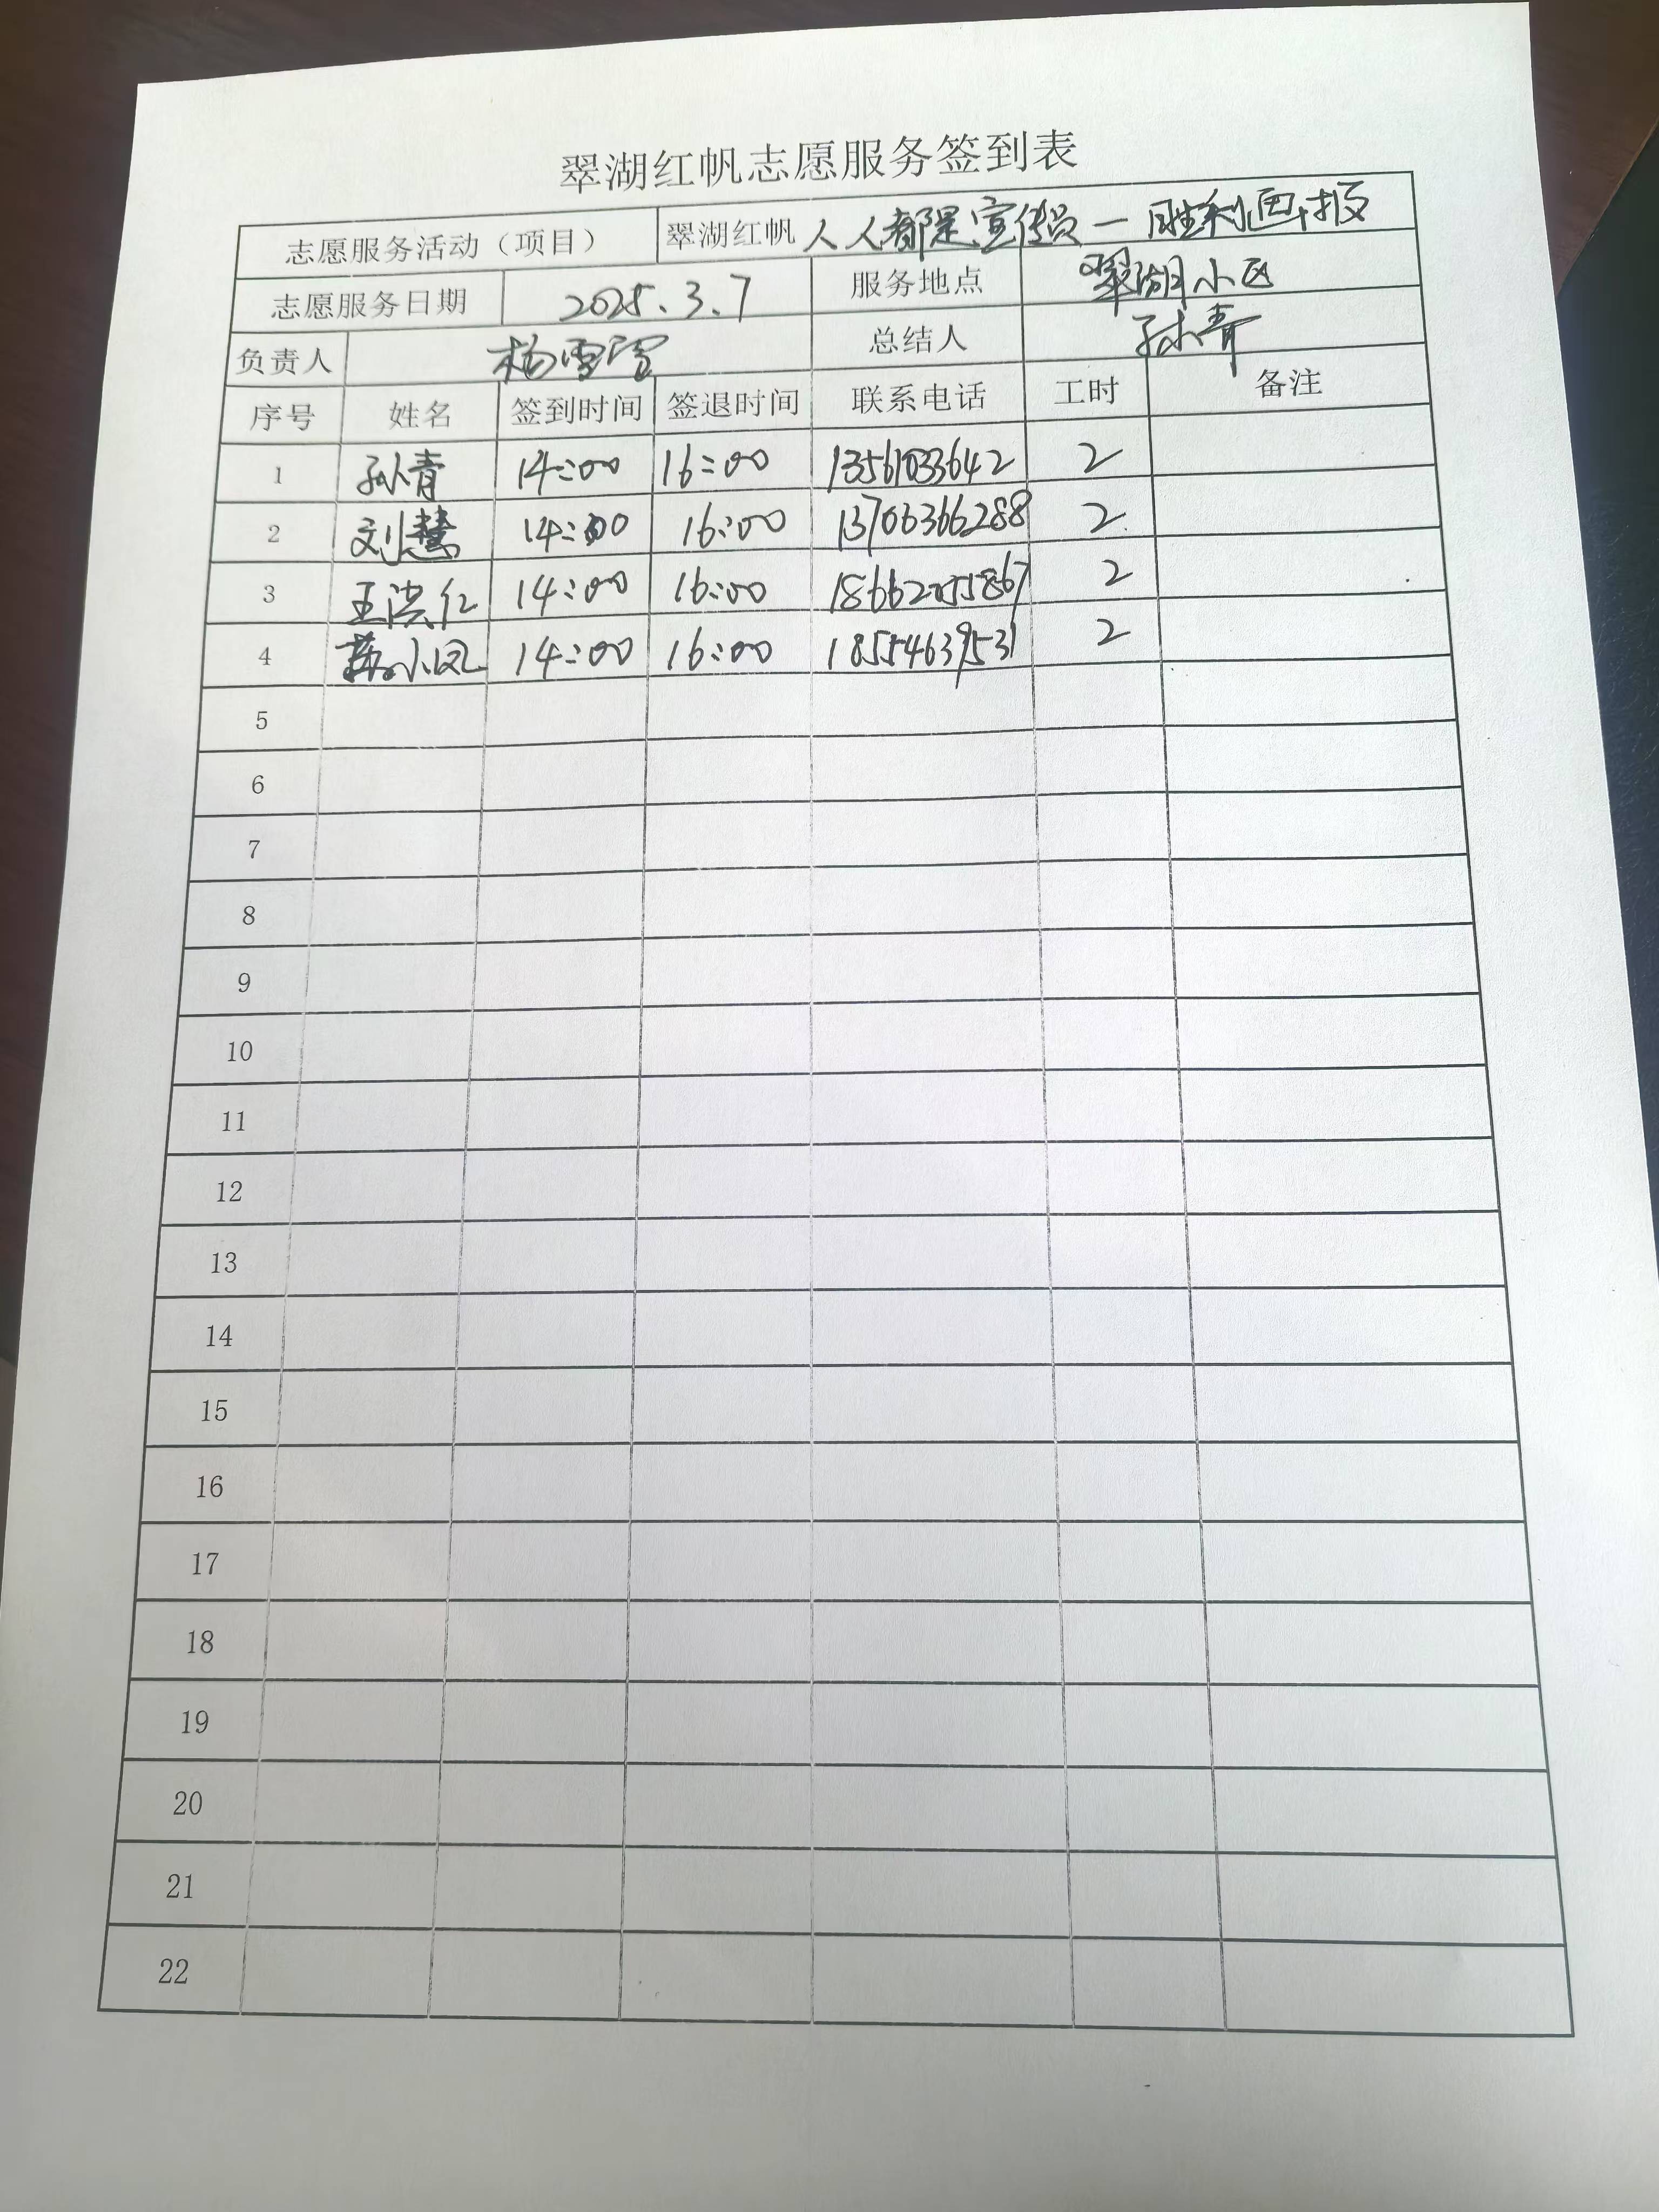 翠湖红帆志愿服务签到表
志愿服务活动（项目） 翠湖红帆 人人都是宣传员—胜利画报
志愿服务日期 2025.3.7 服务地点 翠湖小区
负责人 杨雪 总结人 孙青
序号 姓名 签到时间 签退时间 联系电话 工时 备注
1 孙青 14:00 16:00 13561033642 2
2 刘慧 14:00 16:00 13706366288 2
3 王洪仁 14:00 16:00 18662255867 2
4 小凤 14:00 16:00 18554639531 2
5
6
7
8
9
10
11
12
13
14
15
16
17
18
19
20
21
22